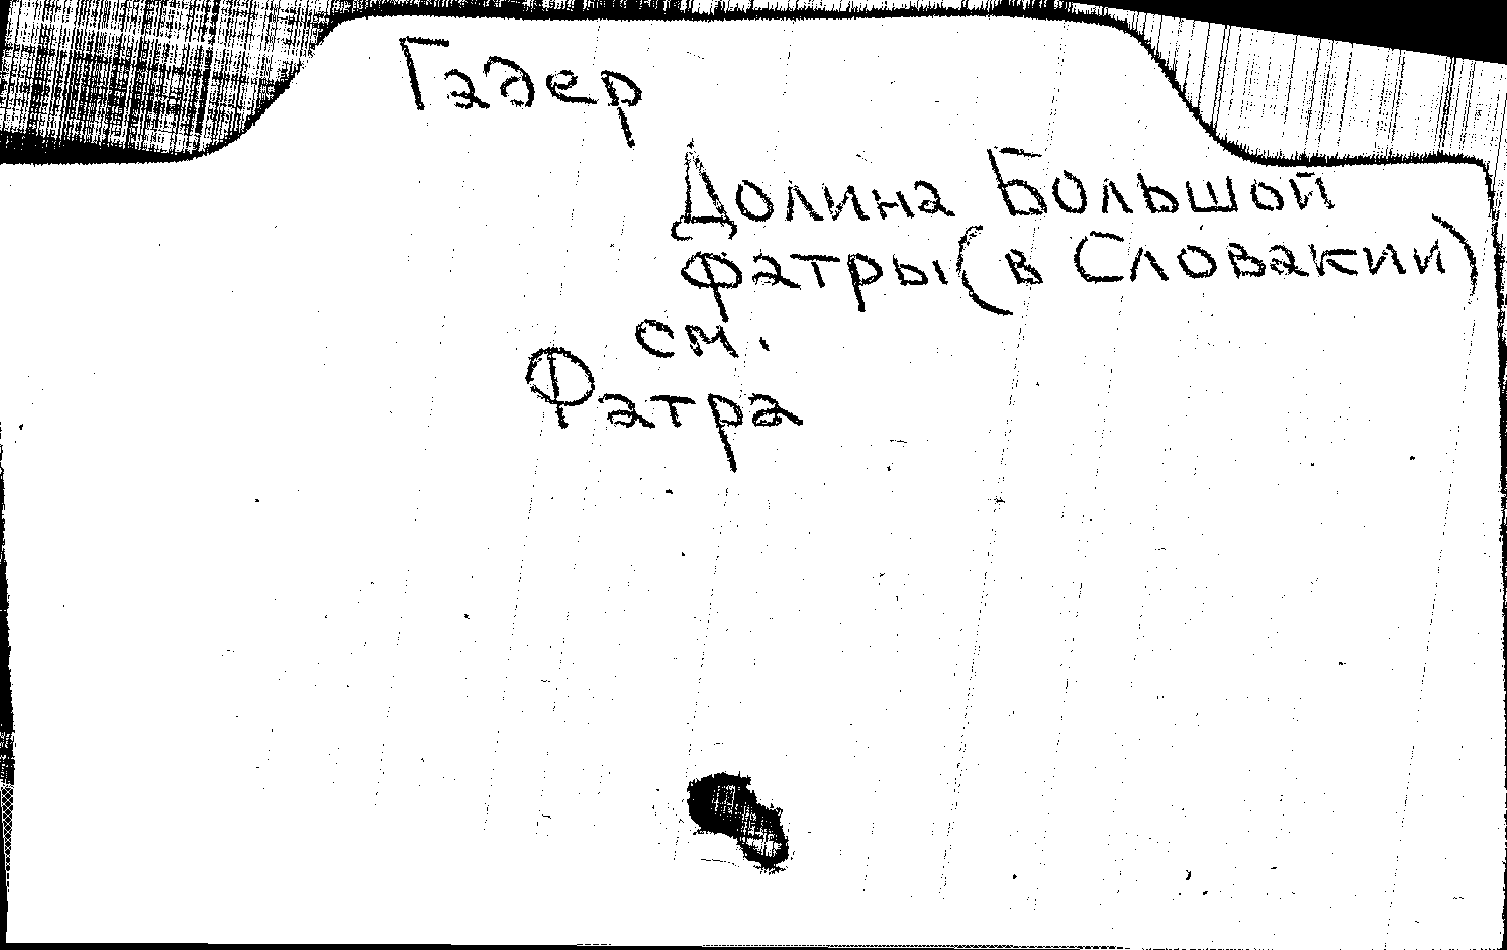 Гадер
Долина Большой
Фатры (в Словакии)
см.
Фатра